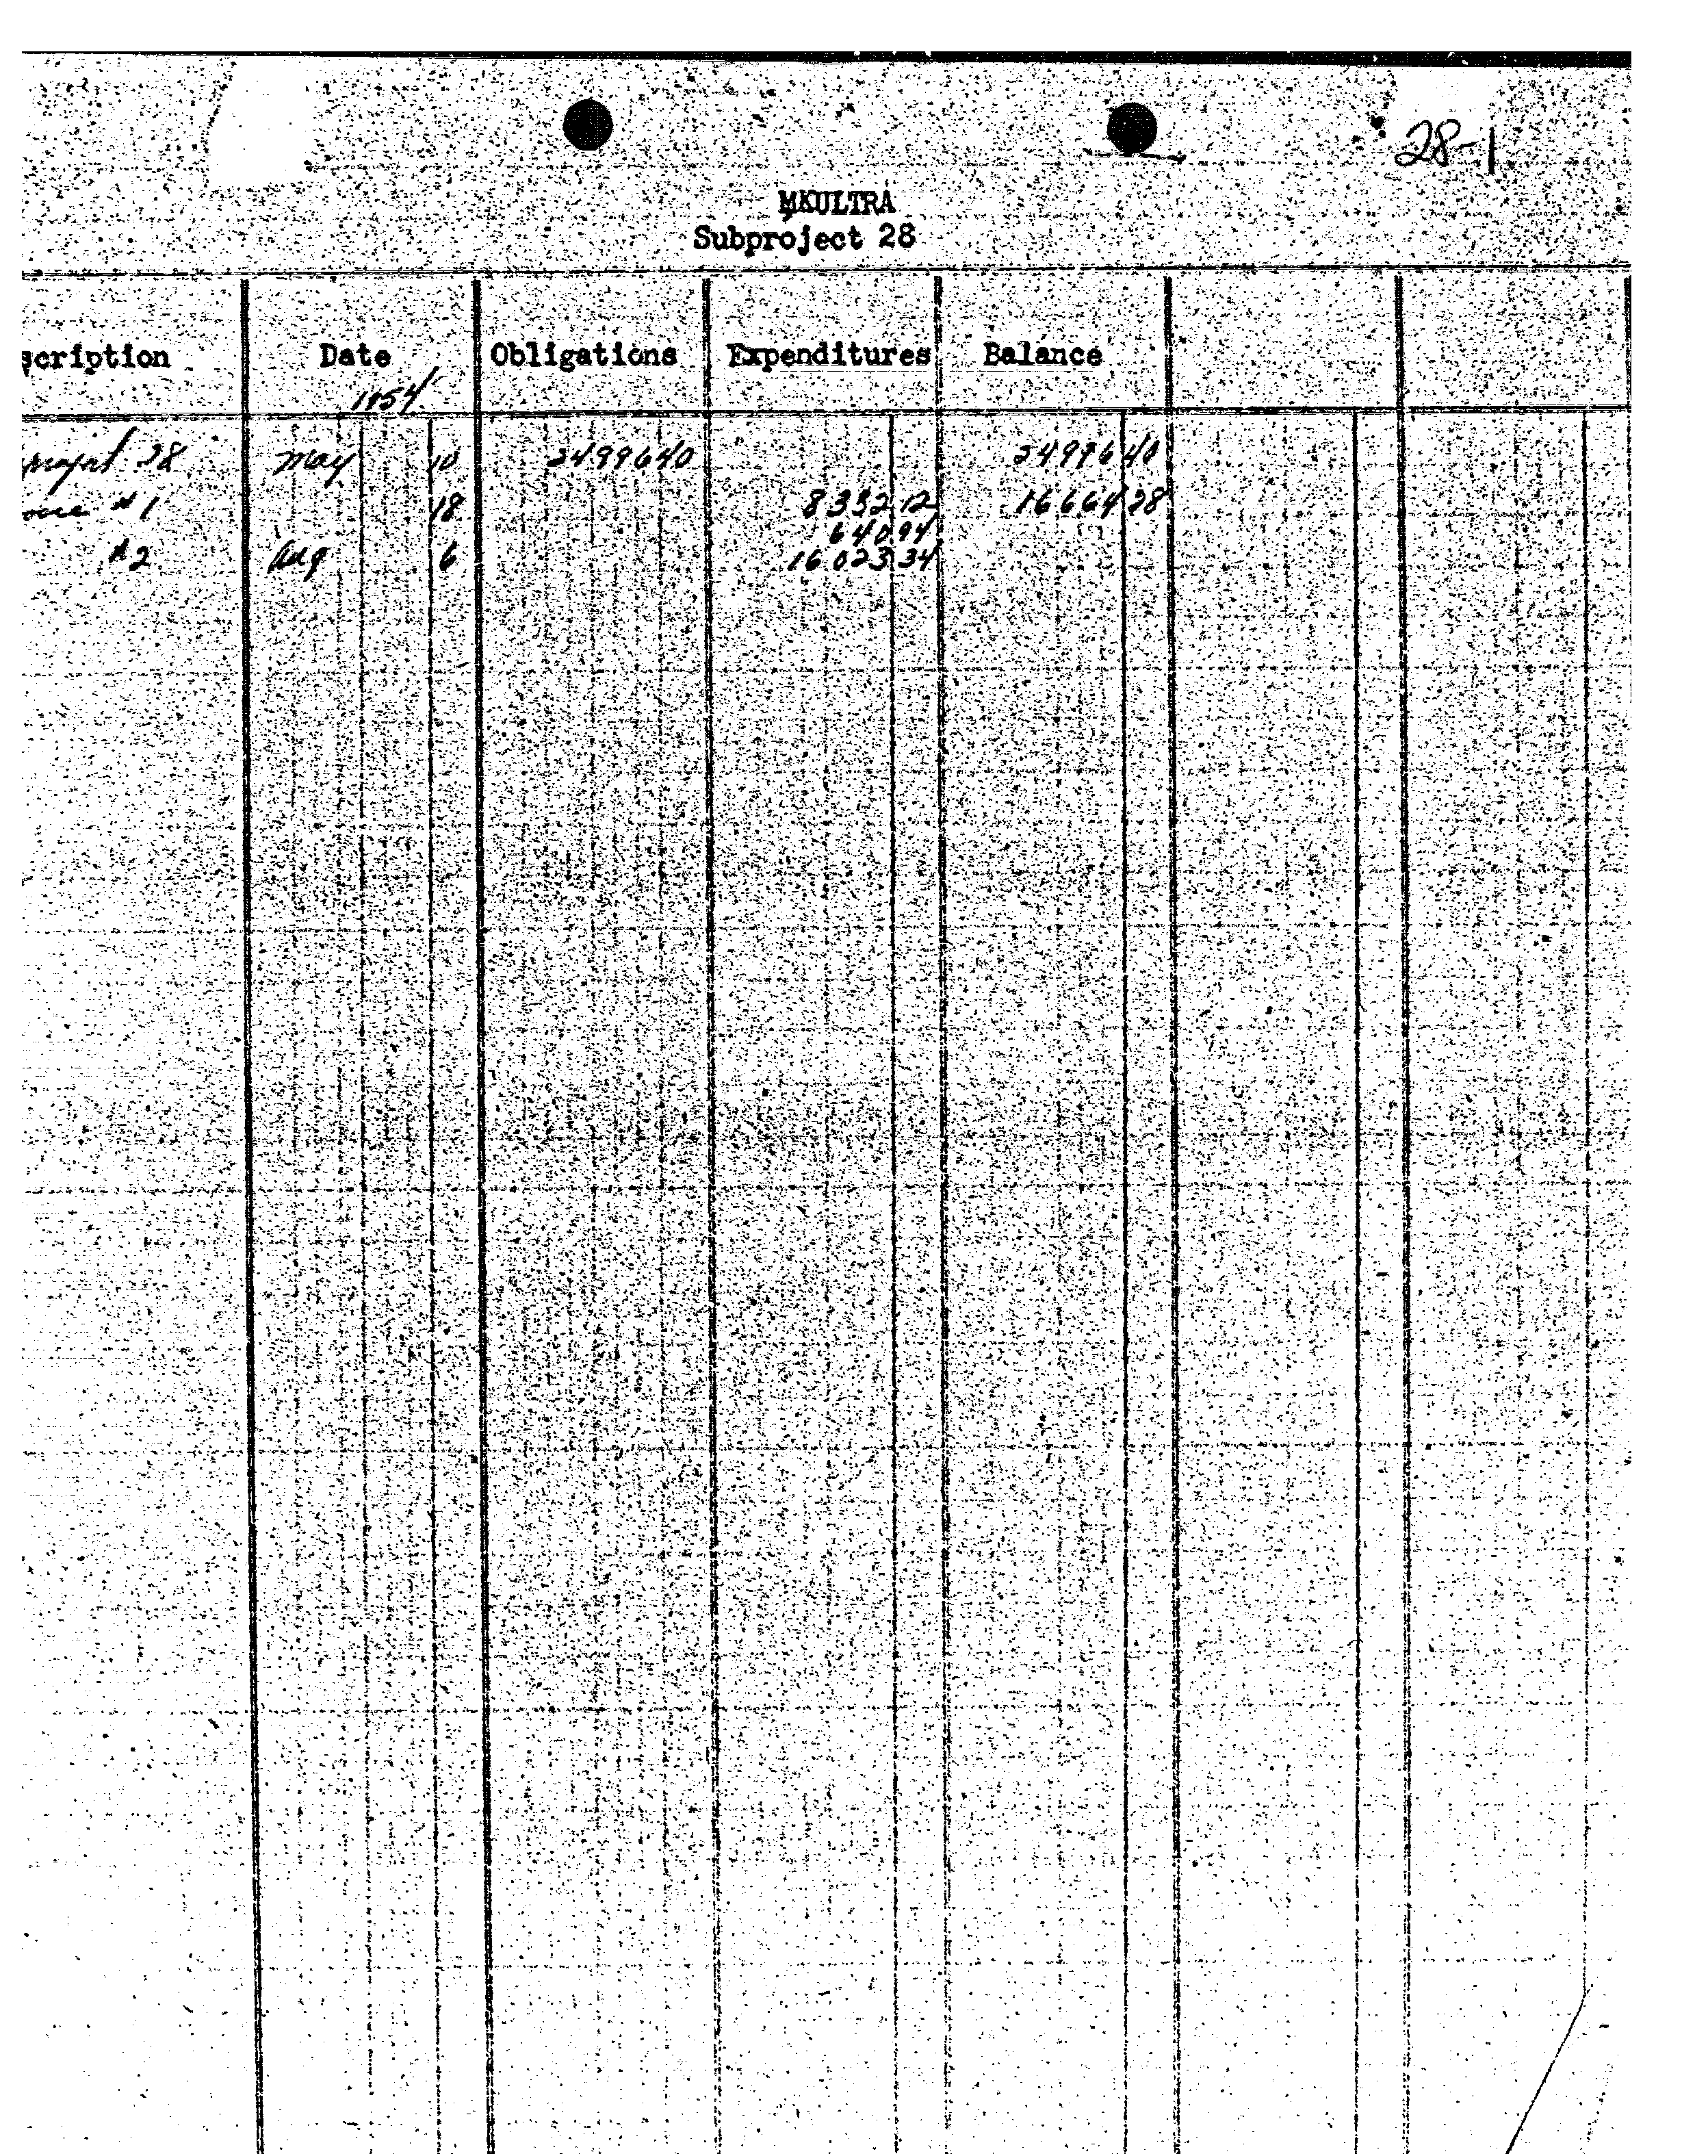 28-1
MKULTRA
Subproject 28
scription Date Obligations Expenditures Balance
1954
28 May 10 24996 40 24996 40
#1 18 8332 12 16664 28
640 94
#2 Aug 6 16 023 34